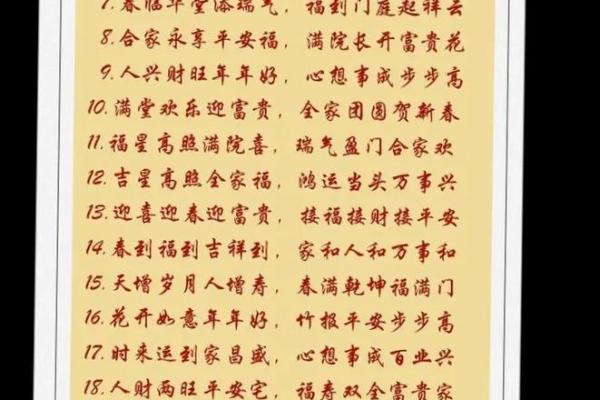 7.春临华堂添瑞气，福到门庭起祥云
8.合家永享平安福，满院长开富贵花
9.人兴财旺年年好，心想事成步步高
10.满堂欢乐迎富贵，全家团圆贺新春
11.福星高照满院喜，瑞气盈门合家欢
12.吉星高照全家福，鸿运当头万事兴
13.迎喜迎春迎富贵，接福接财接平安
14.春到福到吉祥到，家和人和万事和
15.天增岁月人增寿，春满乾坤福满门
16.花开如意年年好，竹报平安步步高
17.时来运到家昌盛，心想事成百业兴
18.人财两旺平安宅，福寿双全富贵家